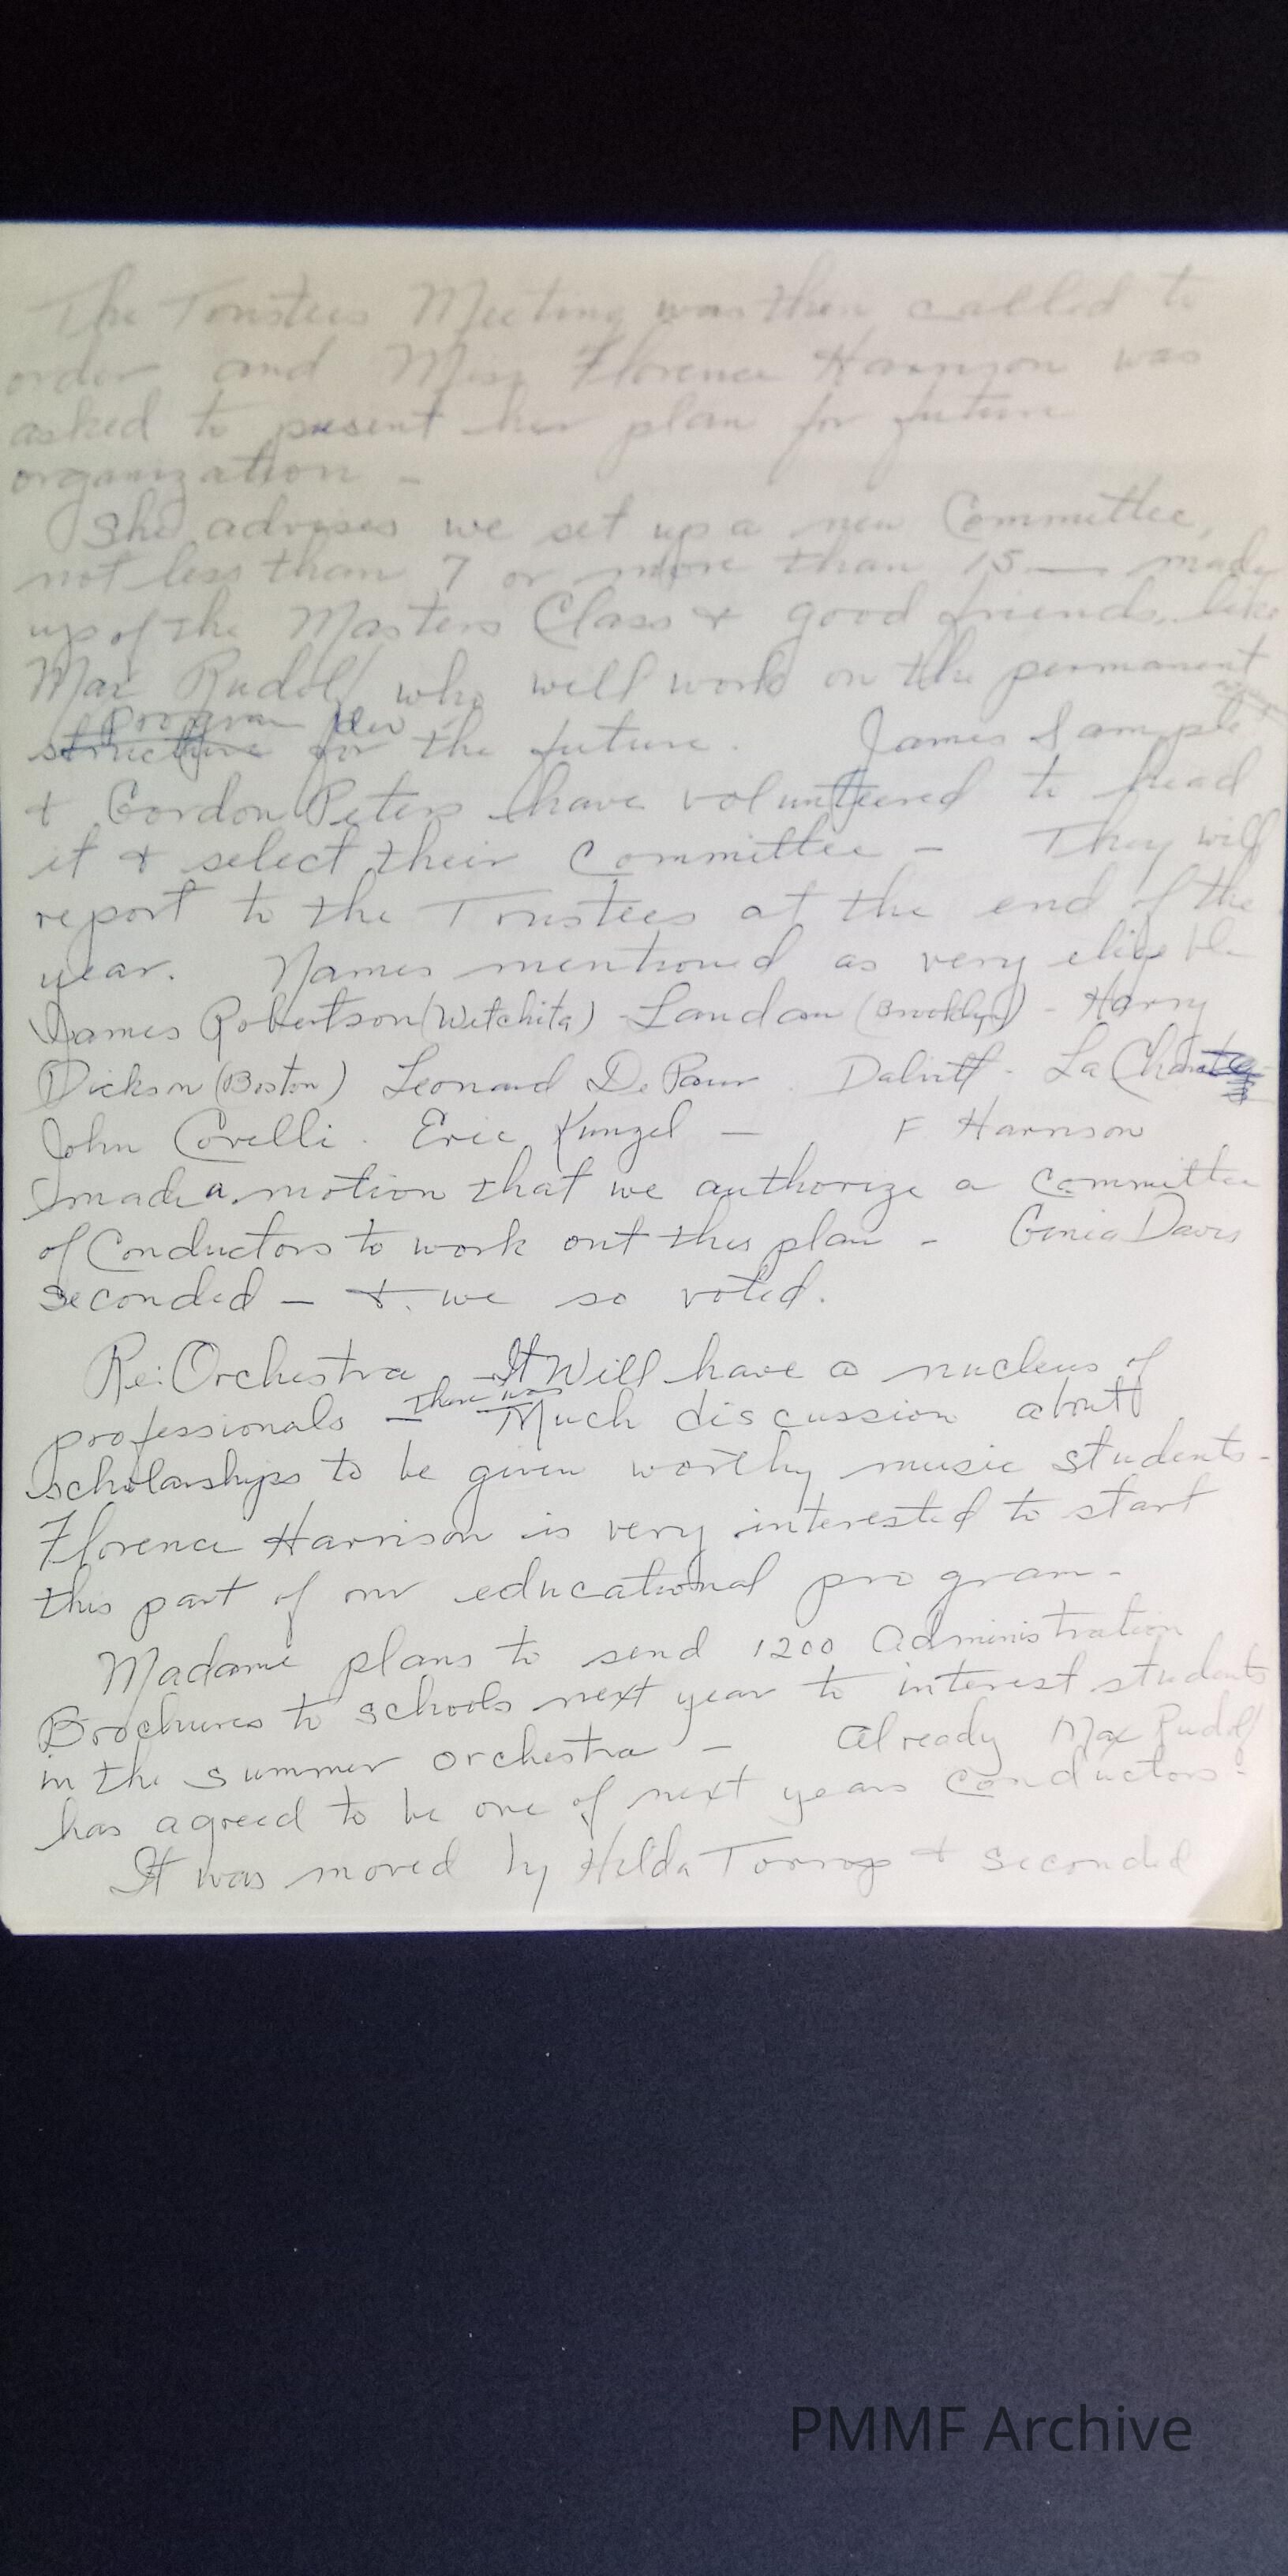 The Trustees Meeting was then called to
order and Miss Florence Harrison was
asked to present her plan for future
organization -
She advises we set up a new Committee,
not less than 7 or more than 15 — made
up of the Masters Class & good friends, like
Max Rudolf who will work on the permanent
program
structure for the future. James Sample
& Gordon Peters have volunteered to head
it & select their Committee - They will
report to the Trustees at the end of the
year. Names mentioned as very eligible
James Robertson (Wetchita) - Landau (Brooklyn) - Harry
Dickson (Boston) Leonard De Paur. - La
John Covelli. Eric Kunzel — F Harrison
made a motion that we authorize a Committee
of Conductors to work out this plan - Genia Davis
seconded — & we so voted.
Re: Orchestra - It Will have a nucleus of
There was
professionals - Much discussion about
scholarships to be given worthy music students -
Florence Harrison is very interested to start
this part of our educational program -
Madame plans to send 1200 Administration
Brochures to schools next year to interest students
in the summer orchestra - Already Max Rudolf
has agreed to be one of next years conductors -
It was moved by Hilda Torrop & seconded
PMMF Archive